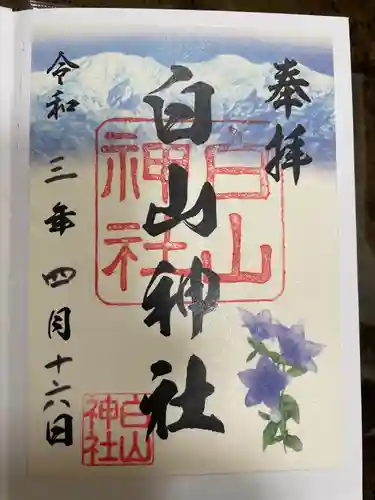 奉拝
白山神社
令和三年四月十六日
白山神社
白山神社